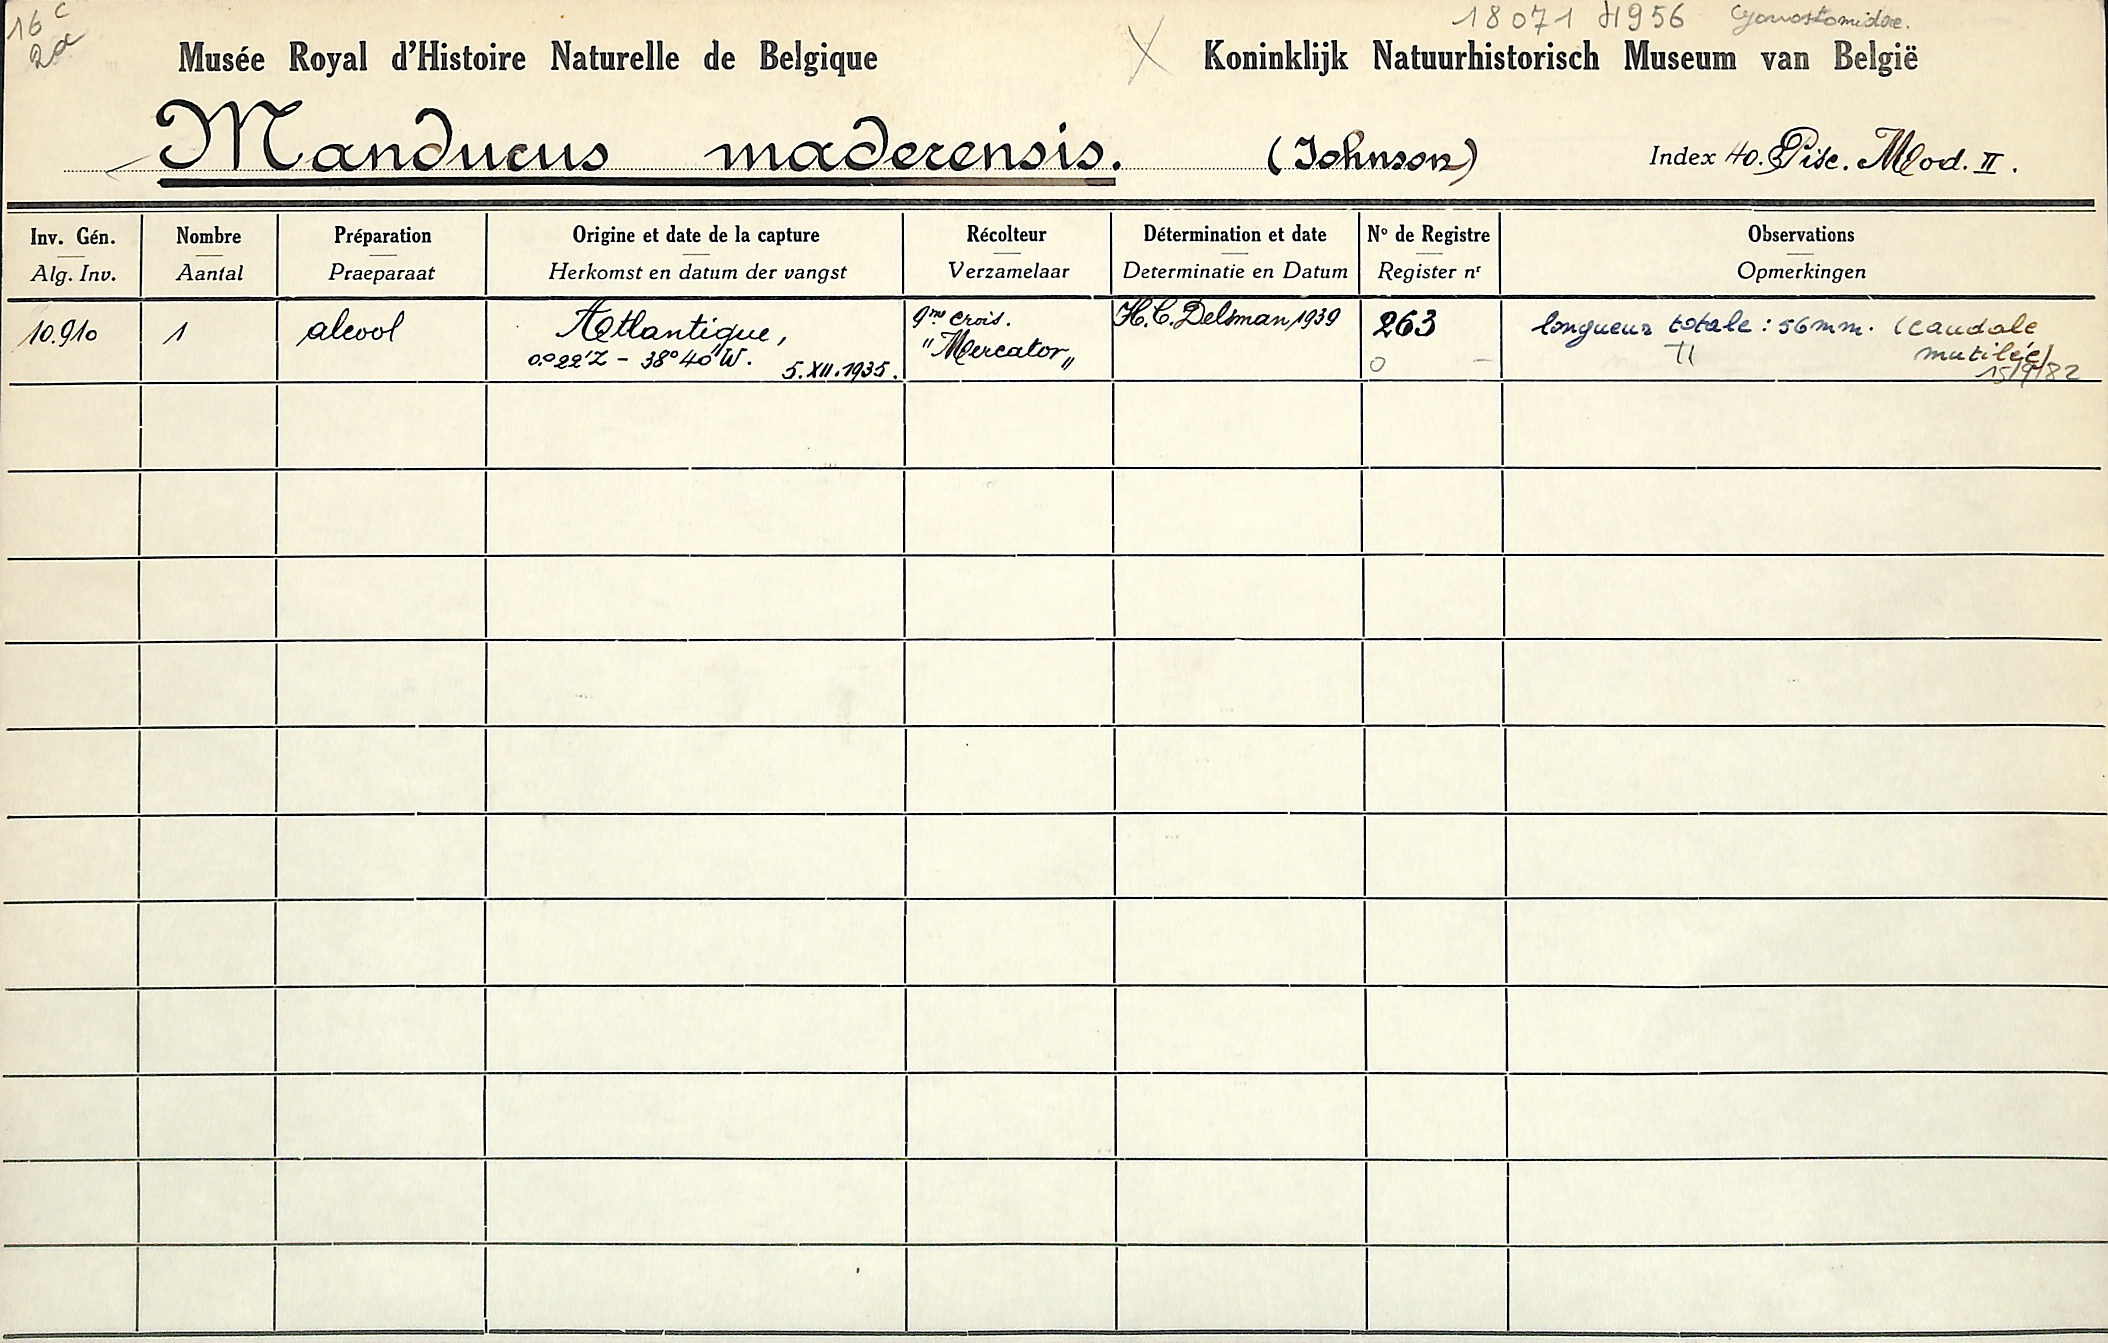 16 c
2a
18071 H956 Gonostomidae.
Musée Royal d'Histoire Naturelle de Belgique
X
Koninklijk Natuurhistorisch Museum van België
Manducus maderensis. (Johnson) Index 40. Pisc. Mod. II.
Inv. Gén. Nombre Préparation Origine et date de la capture Récolteur Détermination et date N° de Registre Observations
Alg. Inv. Aantal Praeparaat Herkomst en datum der vangst Verzamelaar Determinatie en Datum Register nr Opmerkingen
10.910 1 alcool Atlantique, 9me crois. H.C. Delsman, 1939 263 longueur totale : 56mm. (caudale
0°22'Z - 38°40'W. "Mercator„ mutilée)
5.XII.1935. 0 - 15/9/82